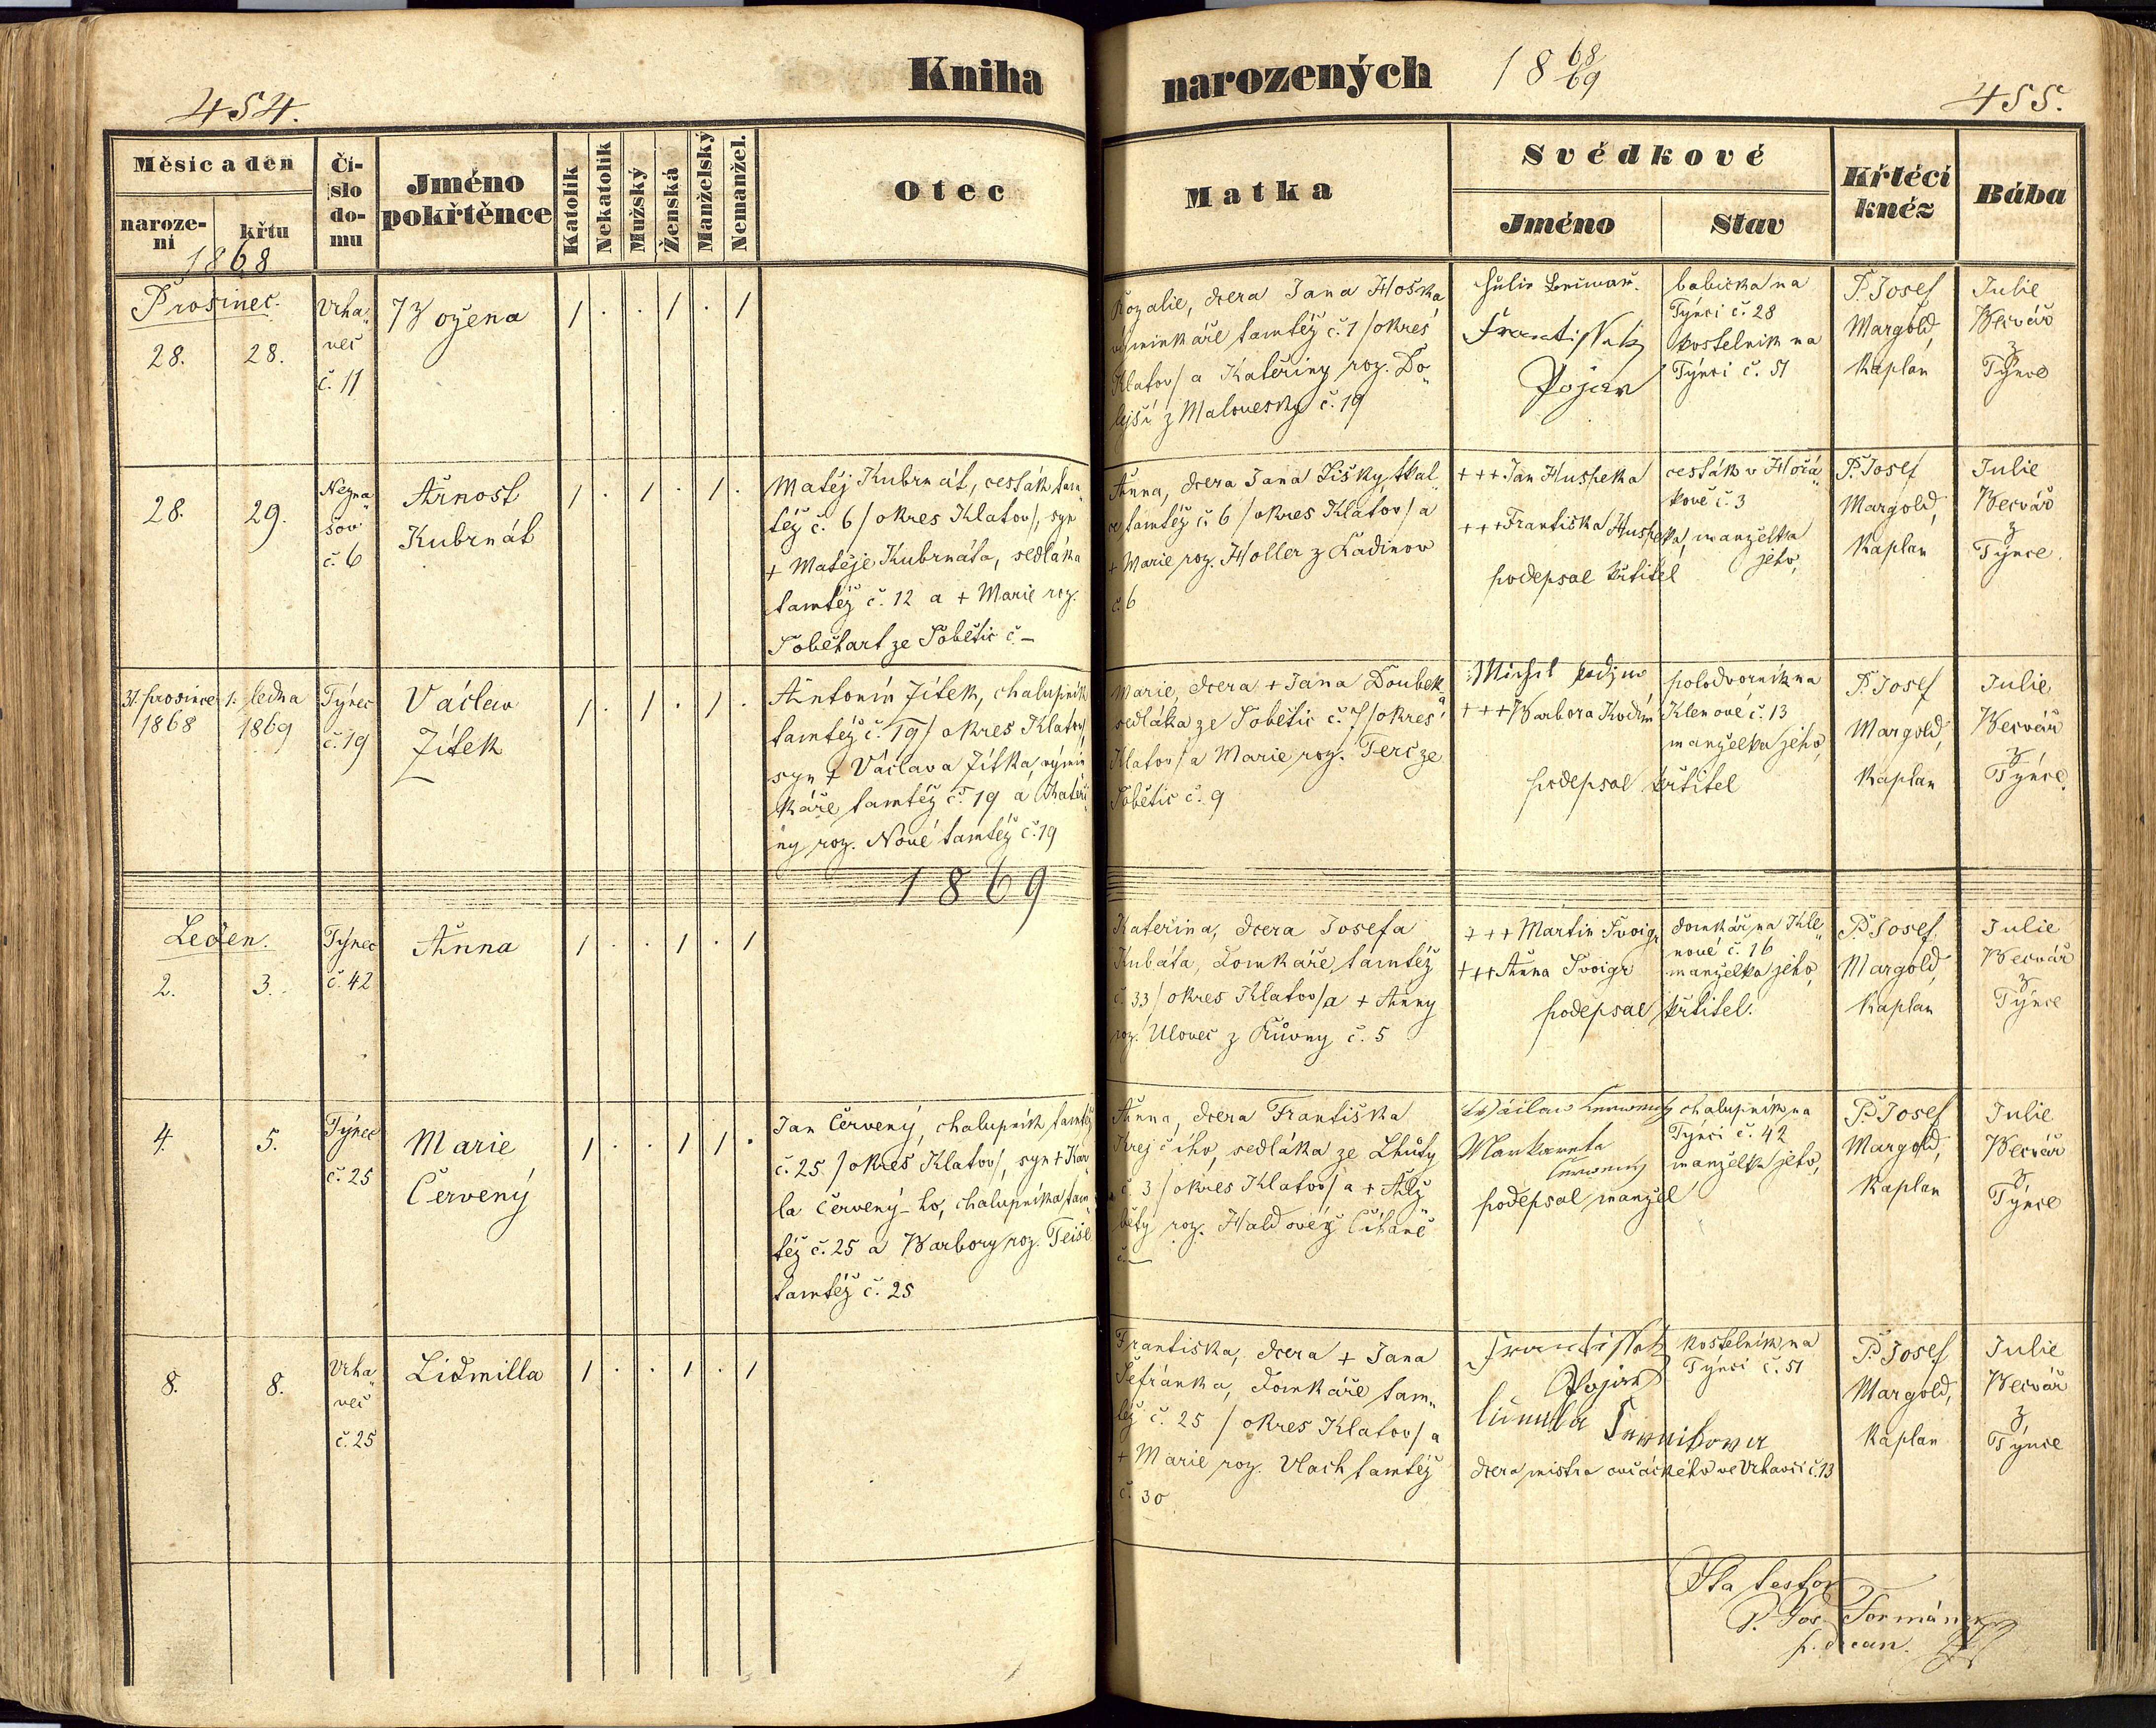 454.
Kniha
narozených
18 68/69
455.
Měsíc a den
naroze-
ní
křtu
1868
Čí-
slo
do-
mu
Jméno
pokřtěnce
Katolík
Nekatolík
Mužský
Ženská
Manželský
Nemanžel.
Otec
Matka
Svědkové
Jméno
Stav
Křtěcí
kněz
Bába
Prosinec.
28.
28.
Vrha„
več
č. 11
Božena
/ . . / . /
Rozalie, dcera Jana Hoška
výminkáře tamtéž č. 1 /okres
Klatov/ a Kateřiny roz. Do„
lejší z Malovesky č. 19
Julie
Frantissek
Pojar
babicka na
Týnci č. 28
kostelník na
Týnci č. 51
P. Josef
Margold,
Kaplan
Julie
Becvář
z
Týnce
28.
29.
Nezna„
šov
č. 6
Arnošt
Kubrnát
/ . / . / .
Matěj Kubrnát, cesták tam„
též č. 6 /okres Klatov/, syn
+ Matěje Kubrnáta, sedláka
tamtéž č. 12 a + Marie roz.
Sobětart ze Sobětic č –
Anna, dcera Jana Lišky tkal„
ce tamtéž č. 6 /okres Klatov/ a
+ Marie roz. Holler z Ladinov
č. 6
+++ Jan Huspeka
+++ Frantiska Huspeka,
podepsal křtitel
cesták v Hořá„
kově č. 3
manželka
jeho,
P. Josef
Margold,
Kaplan
Julie
Becvář
z
Týnce
31. prosince
1868
1. ledna
1869
Týnec
č. 19
Václav
Jítek
/ . / . / .
Antonín Jítek, chalupník
tamtéž č. 19 /okres Klatov/,
syn + Václava Jítka, výmin„
káře tamtéž č. 19 a Kateři„
ny roz. Nové tamtéž č. 19
Marie, dcera + Jana Doubek„
sedláka ze Sobětic č. 7 /okres
Klatov/ a Marie roz. Terč ze
Sobětic č. 9
Michal
+++ Barbora Kodym
podepsal křtitel
polodvorník na
Klenové č. 13
manželka jeho,
P. Josef
Margold,
Kaplan
Julie
Becvář
z
Týnce.
1869
Leden.
2.
3.
Týnec
č. 42
Anna
/ . . / . /
Kateřina, dcera Josefa
Kubáta, domkáře tamtéž
č. 33 /okres Klatov/ a + Anny
roz. Ulovec z Růvny č. 5
+++ Martin Svoigr
+++ Anna Svoigr
podepsal křtitel.
domkář na Kle„
nové č. 16
manželka jeho,
P. Josef
Margold,
Kaplan
Julie
Becvář
z
Týnce
4.
5.
Týnec
č. 25
Marie
Červený
/ . . / / .
Jan Červený, chalupník tamtéž
č. 25 /okres Klatov/, syn + Kar„
la Červený-ho, chalupníka tam„
též č. 25 a Barbory roz. Teisl
tamtéž č. 25
Anna, dcera Františka
Krejčího, sedláka ze Lhůty
č. 3 /okres Klatov/ a + Alž„
běty roz. Haldové z Číhaně
č. —
Václaw
Markareta
podepsal manžel
chalupník na
Týnci č. 42
manželka jeho,
P. Josef
Margold,
Kaplan
Julie
Becvář
z
Týnce
8.
8.
Vrha„
več
č. 25
Lidmilla
/ . . / . /
Frantiska, dcera + Jana
Šefránka, domkáře tam„
též č. 25 /okres Klatov/ a
+ Marie roz. Vlach tamtéž
č. 30
Frantissek
Pojar
dcera mistra ovčáckého ve Vrhavči č. 13
kostelník na
Týnci č. 51
P. Josef
Margold,
Kaplan
Julie
Becvář
z
Týnce
Ita testor
P. Jos. Formánek